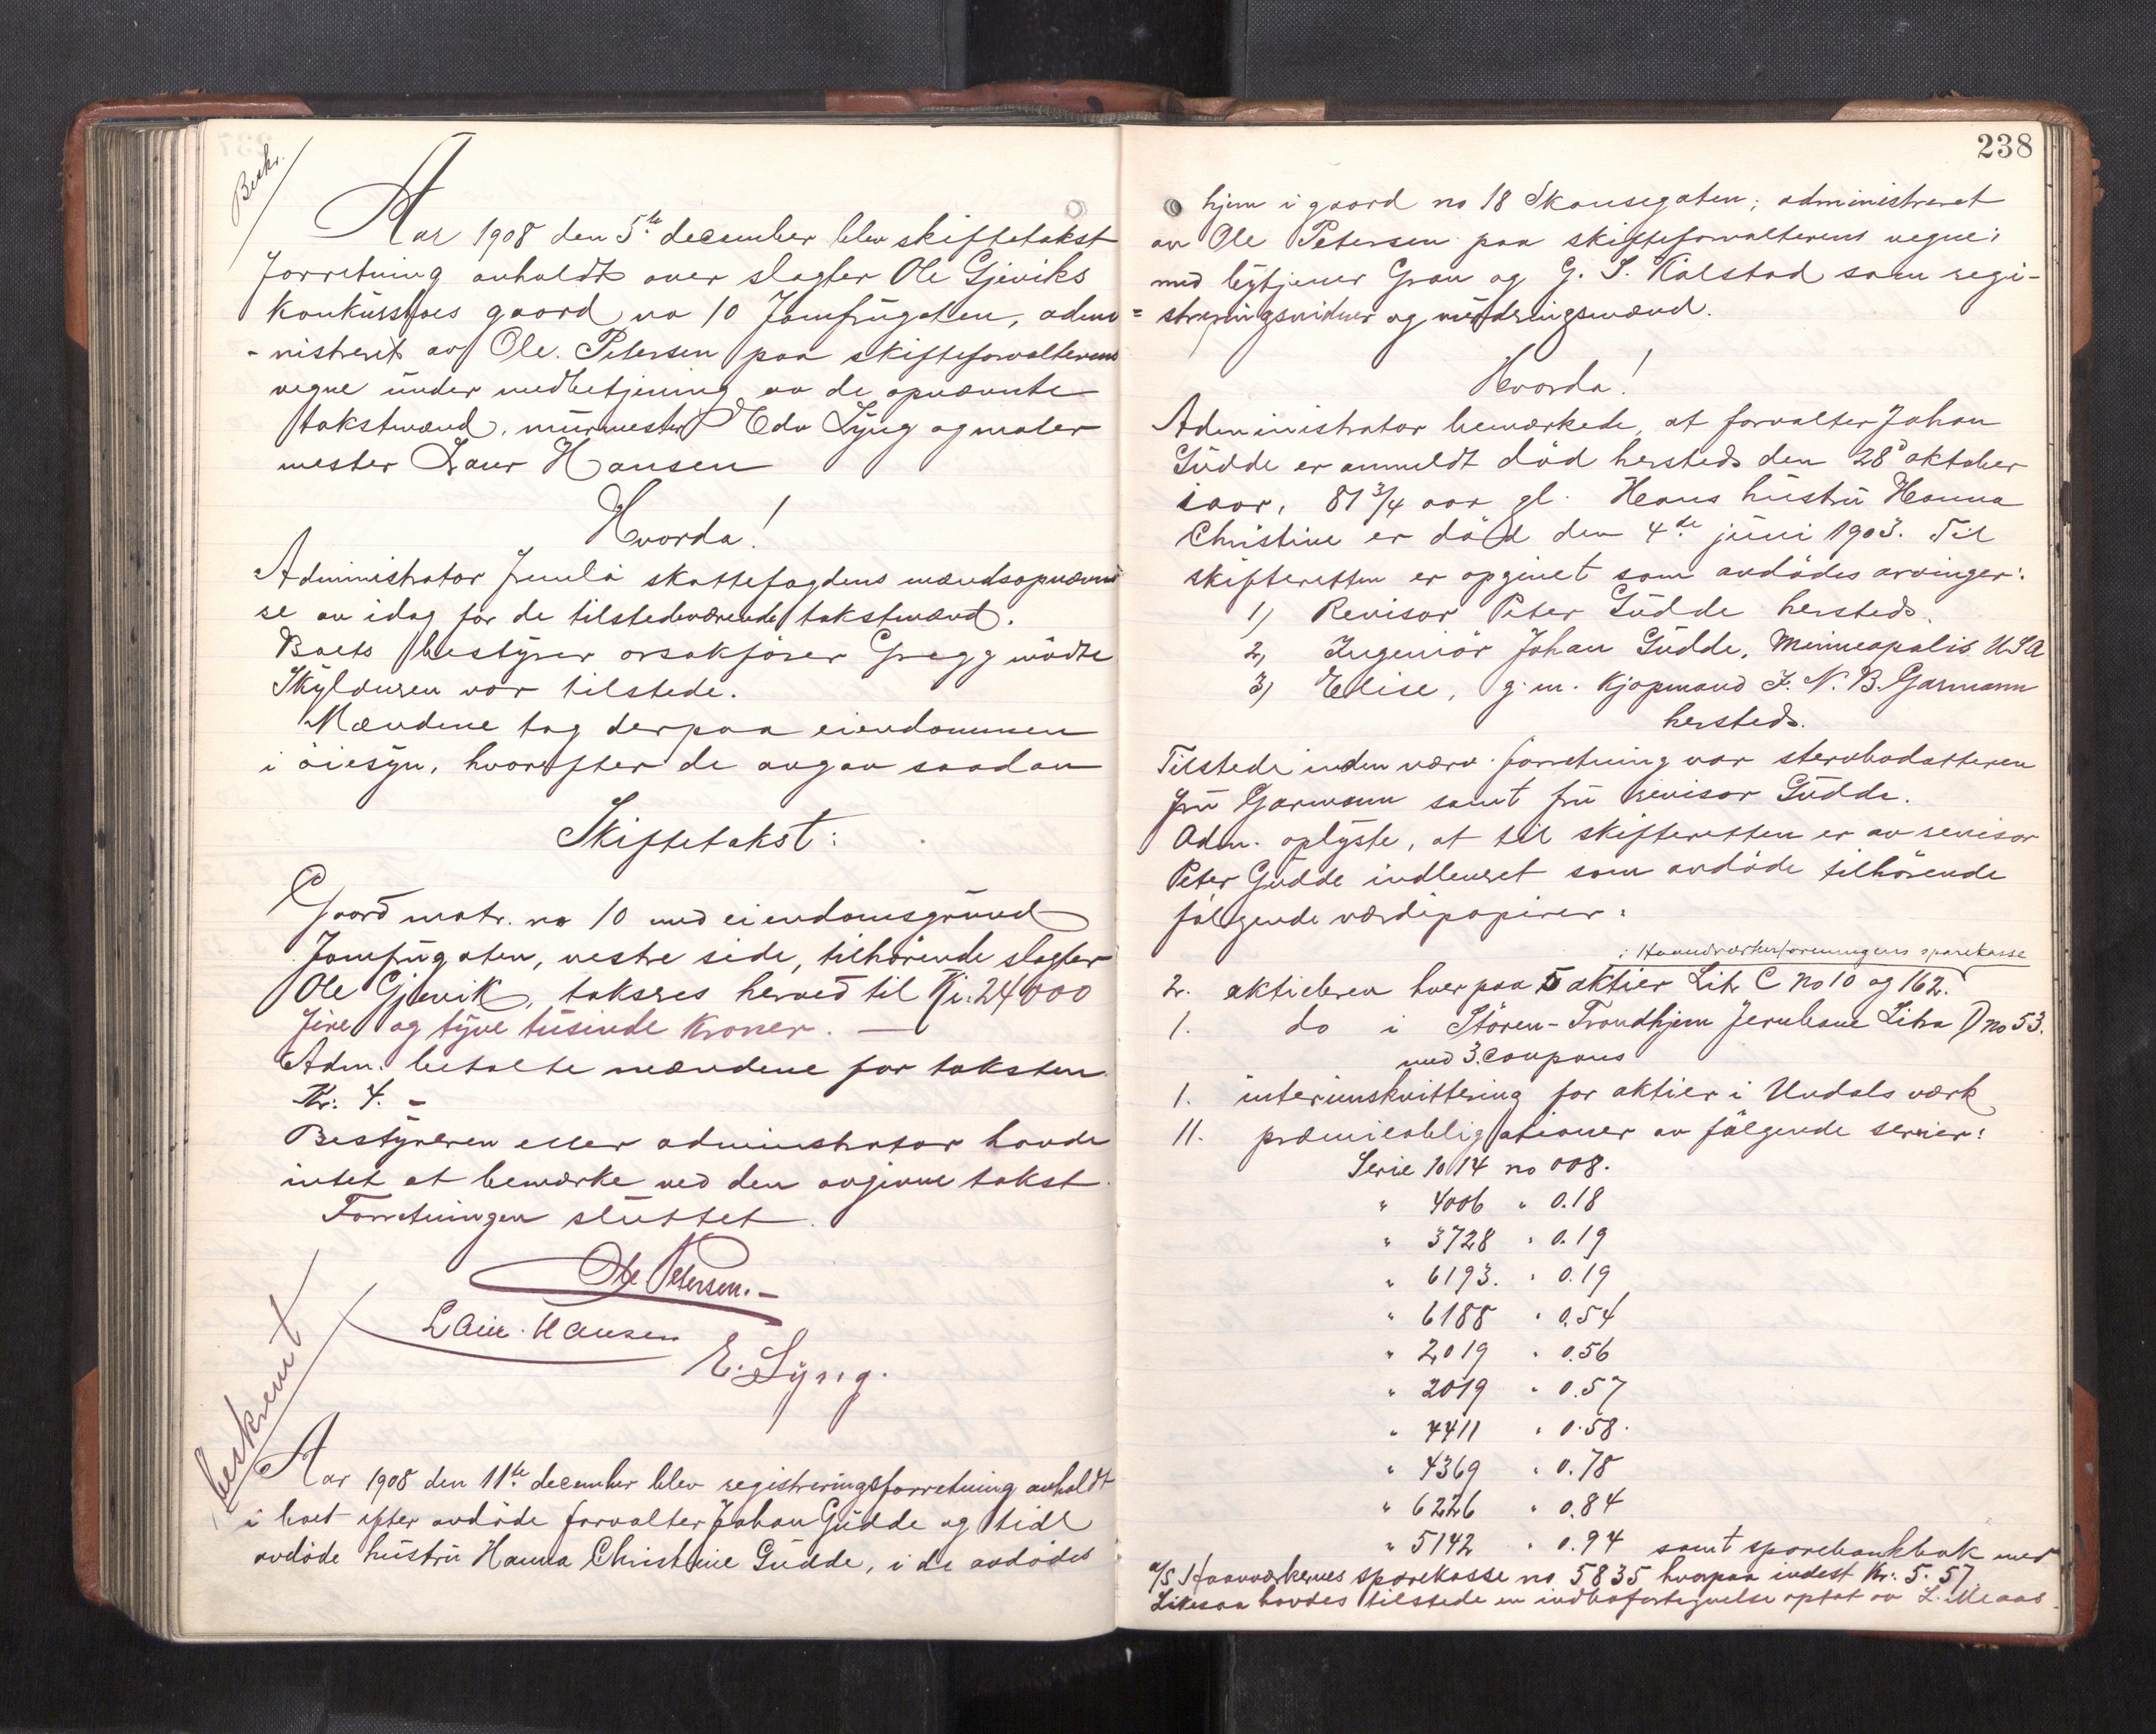 Beskr.
Aar 1908 den 5te december blev skiftetakst
forretning avholdt over slagter Ole Gjeviks
konkursboes gaard no 10 Jomfrugaten, admi
-nistreret av Ole Petersen paa skifteforvalterens
vegne under medbetjening av de opnævnte
takstmænd, murmester Edv Lyng og maler
mester Laur Hansen
Hvorda!
Administrator fremla skattefogdens mændsopnævnel
se av idag for de tilstedeværende takstmænd.
Boets bestyrer orsakfører Gregg mødte
Skyldneren var tilstede.
Mændene tog derpaa eiendommen
i øiesyn, hvorefter de avgav saadan
Skiftetakst:
Gaard matr. no 10 med eiendomsgrund
Jomfrugaten, vestre side, tilhørende slagter
Ole Gjevik, takseres herved til Kr: 24000
fire og tyve tusinde kroner. —
Adm. betalte mændene for taksten
Kr: 4. -
Bestyreren eller administrator havde
intet at bemærke ved den avgivne takst.
Forretningen sluttet.
Ole Petersen.-
Laur. Hansen
E. Lyng.
beskrevet
Aar 1908 den 11te december blev registreringsforretning avholdt
i boet efter avdøde forvalter Johan Gudde og tidl
avdøde hustru Hanna Christine Gudde, i de avdødes
238
hjem i gaard no 18 Skansegaten; administreret
av Ole Petersen paa skifteforvalterens vegne;
med bytjener Grau og G. S. Kalstad som regi-
= streringsvidner og vurderingsmænd.
Hvorda!
Administrator bemærkede, at forvalter Johan
Gudde er anmeldt død hersteds den 28de oktober
iaar, 81 3/4 aar gl. Hans hustru Hanna
Christine er død den 4de juni 1903. Til
skifteretten er opgivet som avdødes arvinger:
1) Revisor Peter Gudde hersteds.
2) Ingeniør Johan Gudde, Minneapolis USA
3) Elise, g. m. kjøpmand F. N. B. Garmann
hersteds.
Tilstede under nærv. forretning var stervbodatteren
fru Garmann samt fru revisor Gudde.
Adm. oplyste, at til skifteretten er av revisor
Peter Gudde indleveret som avdøde tilhørende
følgende værdipapirer:
i Haandværkerforeningens sparekasse
2. aktiebrev hver paa 5 aktier Litr C no 10 og 162.
1. do i Støren-Trondhjem Jernbane Litra D no 53.
med 3. coupons
1. interimskvittering for aktier i Undals værk
11. præmieobligationer av følgende serier:
Serie 1014 no 008.
" 4006 " 0.18
" 3728 " 0.19
" 6193. " 0.19
" 6188 " 0.54
" 2019 " 0.56
" 2019 " 0.57
" 4411 " 0.58.
" 4369 " 0.78
" 6226 " 0.84
" 5142 " 0.94 samt sparebankbok med
a/s Haanværkernes sparekasse no 5835 hvorpaa indest Kr: 5.57.
Likesaa havdes tilstede en indbofortegnelse optat av L. Meaas